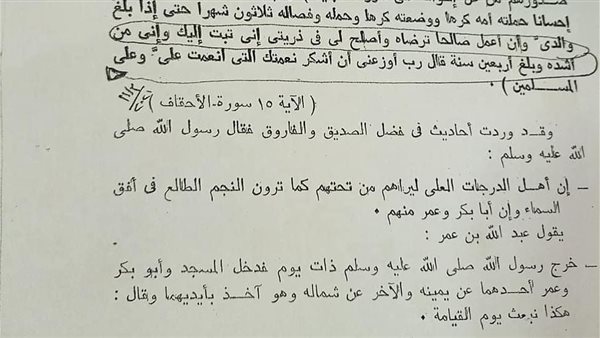 إحسانا حملته أمه كرها ووضعته كرها وحمله وفصاله ثلاثون شهرا حتى إذا بلغ
والدىّ وإن أعمل صالحا ترضاه وأصلح لى فى ذريتى إنى تبت إليك وإنى من
أشده وبلغ أربعين سنة قال رب أوزعنى أن أشكر نعمتك التى أنعمت علىّ وعلى
المسلمين ) ٠
( الآية ١٥ سورة الأحقاف )
وقد وردت أحاديث فى فضل الصديق والفاروق فقال رسول الله صلى
الله عليه وسلم :
– إن أهل الدرجات العلى ليراهم من تحتهم كما ترون النجم الطالع فى أفق
السماء وإن أبا بكر وعمر منهم ٠
يقول عبد الله بن عمر :
– خرج رسول الله صلى الله عليه وسلم ذات يوم فدخل المسجد وأبو بكر
وعمر أحدهما عن يمينه والآخر عن شماله وهو آخذ بأيديهما وقال :
هكذا نبعث يوم القيامة ٠